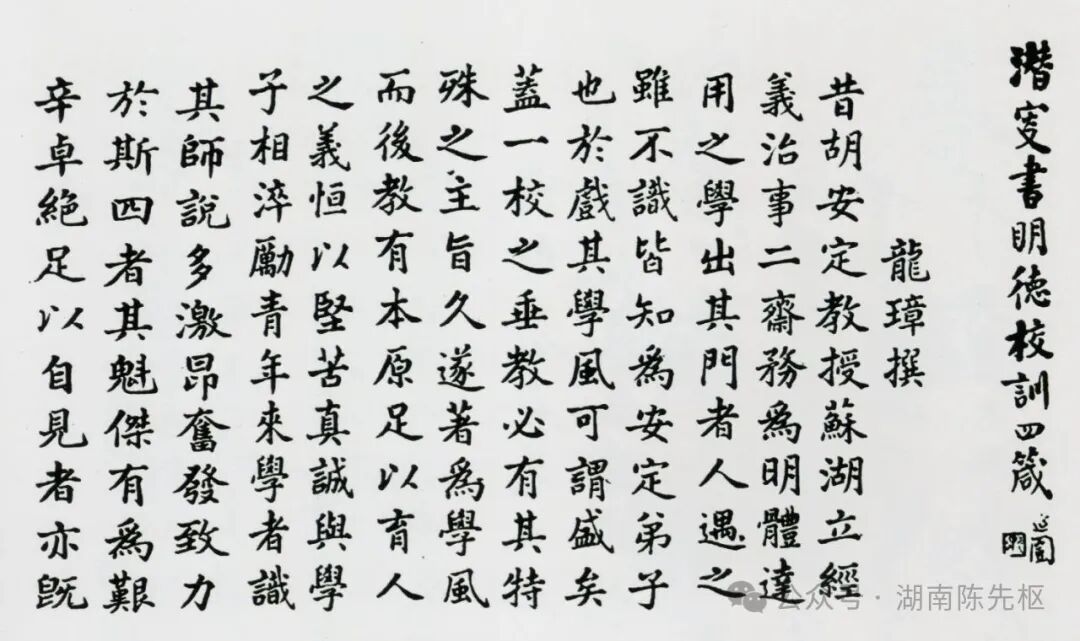 潛叟書明德校訓四箴
龍璋撰
昔胡安定教授蘇湖立經
義治事二齋務為明體達
用之學出其門者人遇之
雖不識皆知為安定弟子
也於戲其學風可謂盛矣
蓋一校之垂教必有其特
殊之主旨久遂著為學風
而後教有本原足以育人
之義恒以堅苦真誠與學
子相淬勵青年來學者識
其師說多激昂奮發致力
於斯四者其魁傑有為艱
辛卓絕足以自見者亦既
公众号 · 湖南陈先枢